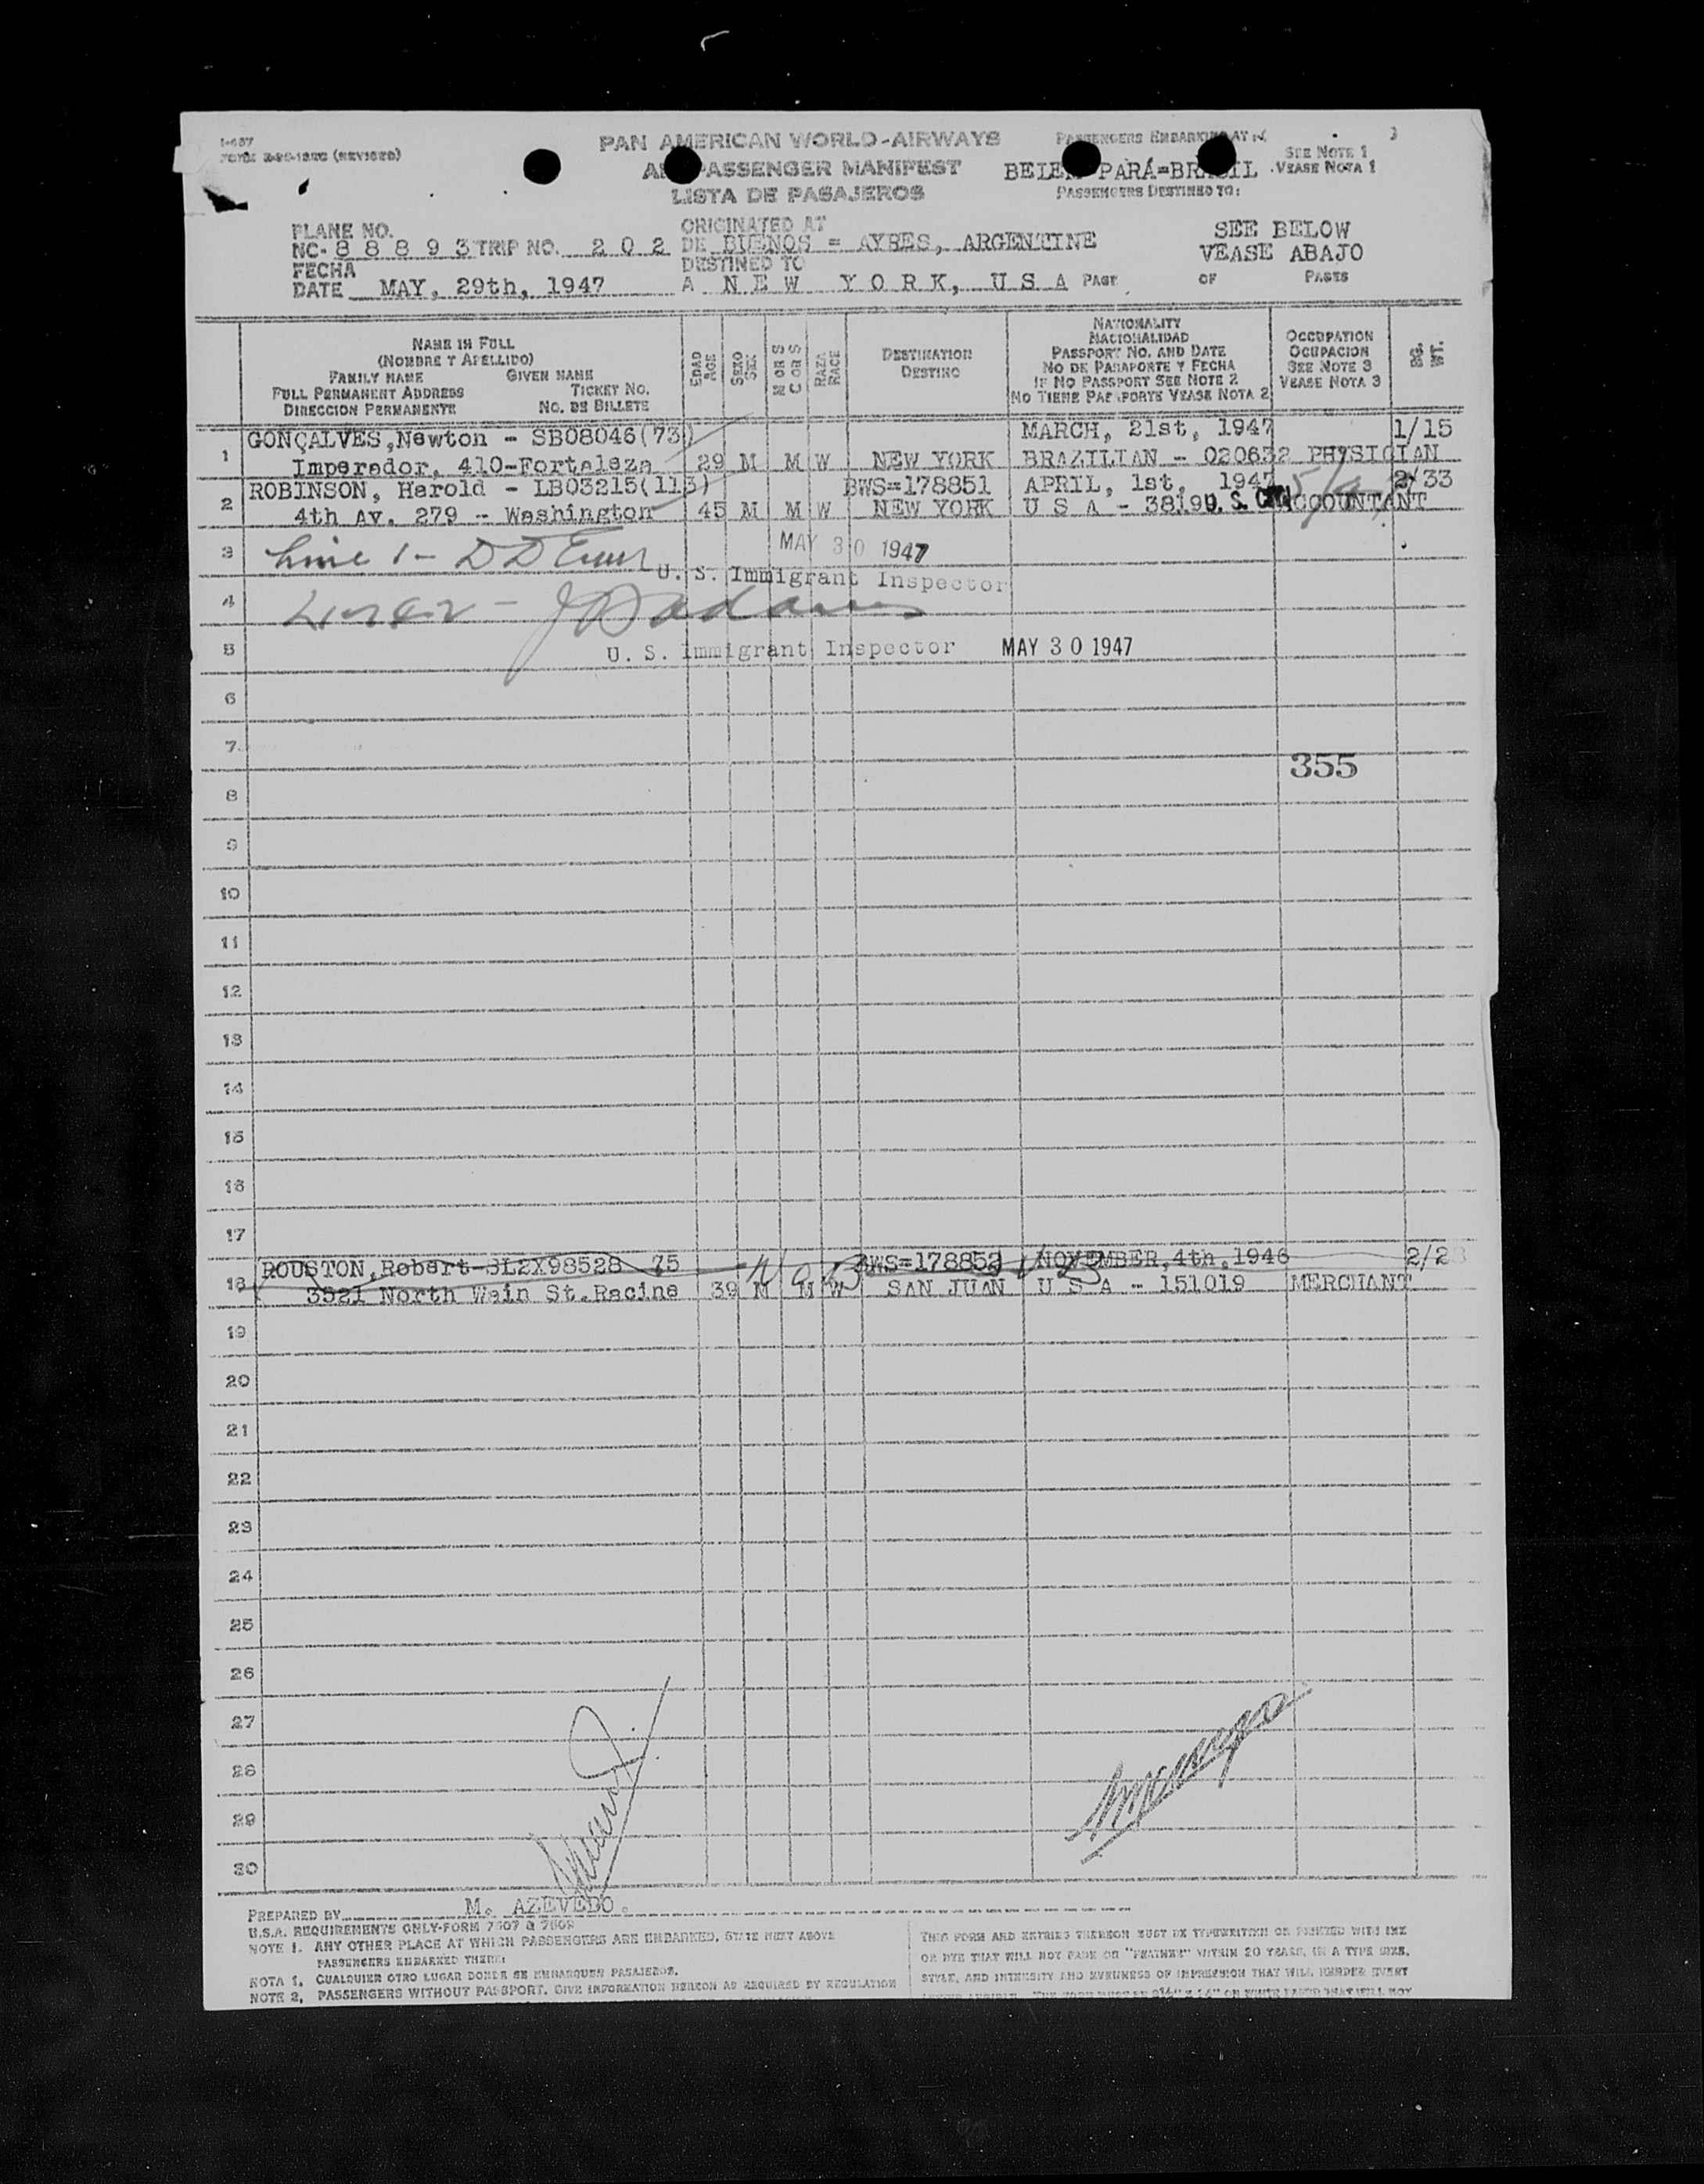 I-457
PAN AMERICAN WORLD-AIRWAYS
PASSENGER MANIFEST
LISTA DE PASAJEROS
PASSENGERS EMBARKING AT
PARÁ=BR
SEE NOTE 1
VEASE NOTA 1
PASSENGERS DESTINED TO:
SEE BELOW
VEASE ABAJO
PLANE NO.
NC- 8 8 8 9 3 TRIP NO. 2 0 2
ORIGINATED AT
DE BUENOS = AYRES, ARGENTINE
FECHA
DATE MAY, 29th, 1947
DESTINED TO
A N E W Y O R K, U S A PAGE OF PAGES
NAME IN FULL
(NOMBRE Y APELLIDO)
FAMILY NAME GIVEN NAME
FULL PERMANENT ADDRESS TICKET NO.
DIRECCION PERMANENTE NO. DE BILLETE
EDAD
AGE
SEXO
SEX
M OR S
C OR S
RAZA
RACE
DESTINATION
DESTINO
NATIONALITY
NACIONALIDAD
PASSPORT NO. AND DATE
NO DE PASAPORTE Y FECHA
IF NO PASSPORT SEE NOTE 2
NO TIENE PASAPORTE VEASE NOTA 2
OCCUPATION
OCUPACION
SEE NOTE 3
VEASE NOTA 3
WT.
GONÇALVES,Newton - SB08046(73) MARCH, 21st, 1947 1/15
1 Imperador, 410-Fortaleza 29 M M W NEW YORK BRAZILIAN - 020632 PHYSICIAN
ROBINSON, Harold - LB03215(113) BWS=178851 APRIL, 1st, 1947 2/33
2 4th Av. 279 - Washington 45 M M W NEW YORK U S A - 3819 U. S. ACCOUNTANT
3 Line 1 - MAY 30 1947
U. S. Immigrant Inspector
4
5 U. S. Immigrant Inspector MAY 30 1947
6
7
355
8
9
10
11
12
13
14
15
16
17
ROUSTON,Robert-SL2X98528 75 BWS=178852 NOVEMBER,4th,1946 2/2
18 3521 North Wain St.Racine 39 M M W SAN JUAN U S A - 151019 MERCHANT
19
20
21
22
23
24
25
26
27
28
29
30
PREPARED BY M. AZEVEDO.
U.S.A. REQUIREMENTS ONLY-FORM 7507 & 7509
NOTE 1. ANY OTHER PLACE AT WHICH PASSENGERS ARE EMBARKED, STATE NEXT ABOVE
PASSENGERS EMBARKED THERE:
NOTA 1. CUALQUIER OTRO LUGAR DONDE SE EMBARQUEN PASAJEROS.
NOTE 2. PASSENGERS WITHOUT PASSPORT. GIVE INFORMATION HEREON AS REQUIRED BY REGULATION
THIS FORM AND ENTRIES THEREON MUST BE TYPEWRITTEN OR PRINTED WITH INK
OR DYE THAT WILL NOT FADE OR "FEATHER" WITHIN 20 YEARS, IN A TYPE SIZE,
STYLE, AND INTENSITY AND EVENNESS OF IMPRESSION THAT WILL RENDER EVERY